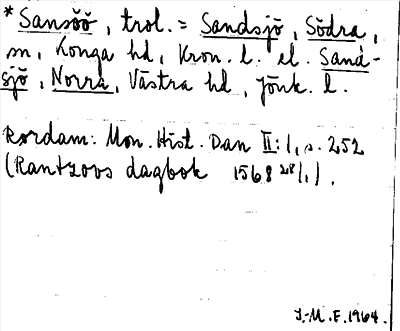 * Sansöö, trol. = Sandsjö, Södra,
sn, Konga hd, Kron. l. el. Sand-
sjö, Norra, Västra hd, Jönk. l.
Rördam: Mon. Hist. Dan II: 1, s. 252
(Rantzovs dagbok 1568 28/1).
J.-M. F. 1964.